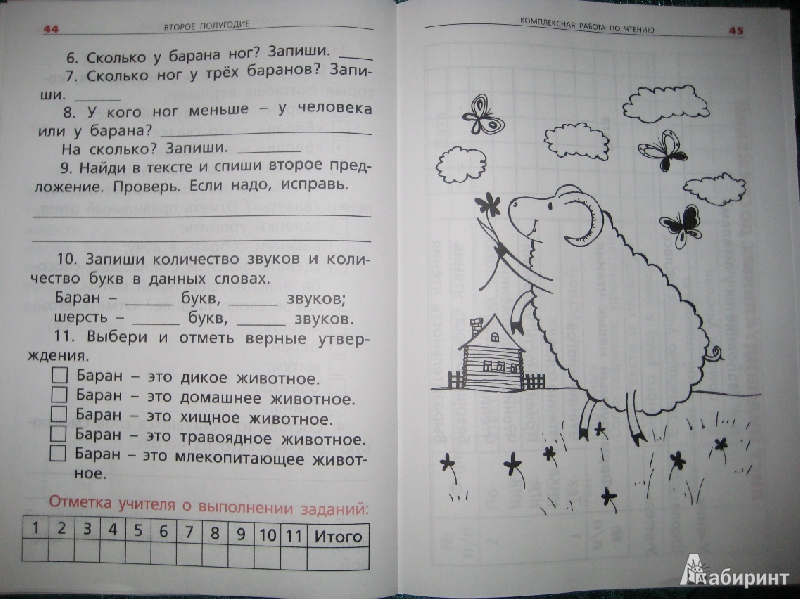 44
ВТОРОЕ ПОЛУГОДИЕ
6. Сколько у барана ног? Запиши. ____
7. Сколько ног у трёх баранов? Запи-
ши. ______
8. У кого ног меньше – у человека
или у барана? ____________________
На сколько? Запиши. _________
9. Найди в тексте и спиши второе пред-
ложение. Проверь. Если надо, исправь.
10. Запиши количество звуков и коли-
чество букв в данных словах.
Баран – ______ букв, ______ звуков;
шерсть – ______ букв, ______ звуков.
11. Выбери и отметь верные утвер-
ждения.
Баран – это дикое животное.
Баран – это домашнее животное.
Баран – это хищное животное.
Баран – это травоядное животное.
Баран – это млекопитающее живот-
ное.
Отметка учителя о выполнении заданий:
1 2 3 4 5 6 7 8 9 10 11 Итого
КОМПЛЕКСНАЯ РАБОТА ПО ЧТЕНИЮ
45
Лабиринт